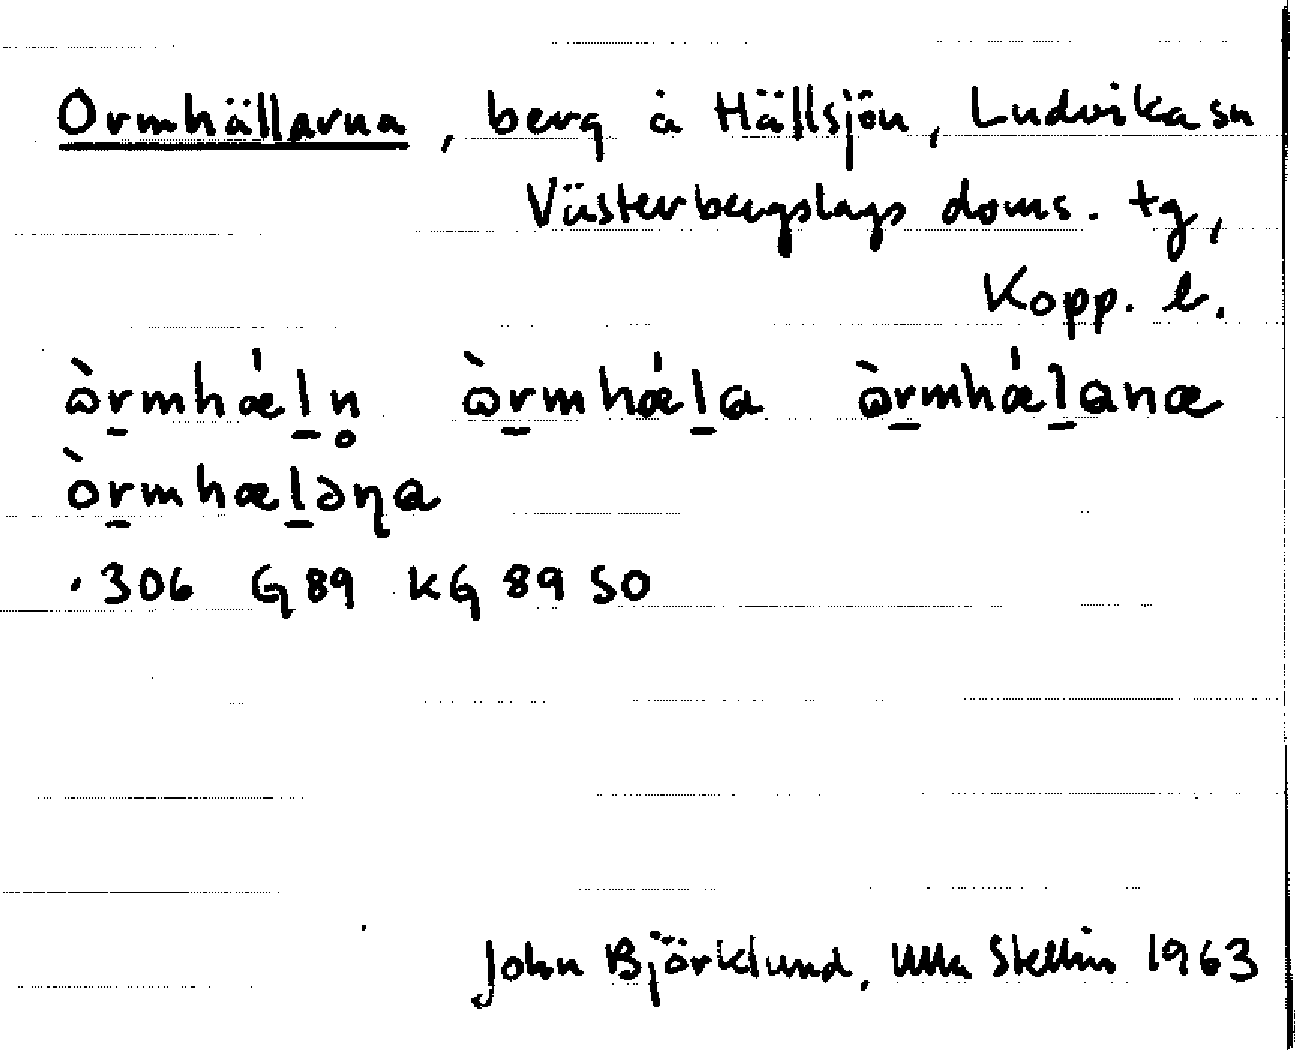 Ormhällarna, berg å Hällsjön, Ludvika sn
Västerbergslags doms. tg,
Kopp. l.
ɷ̀r̠mhǽl̠n̥ ɷ̀r̠mhǽl̠a ɷ̀r̠mhǽl̠anæ
òr̠mhæl̠əɳa
306 G 89 KG 89 SO
John Björklund, Ulla Stellin 1963